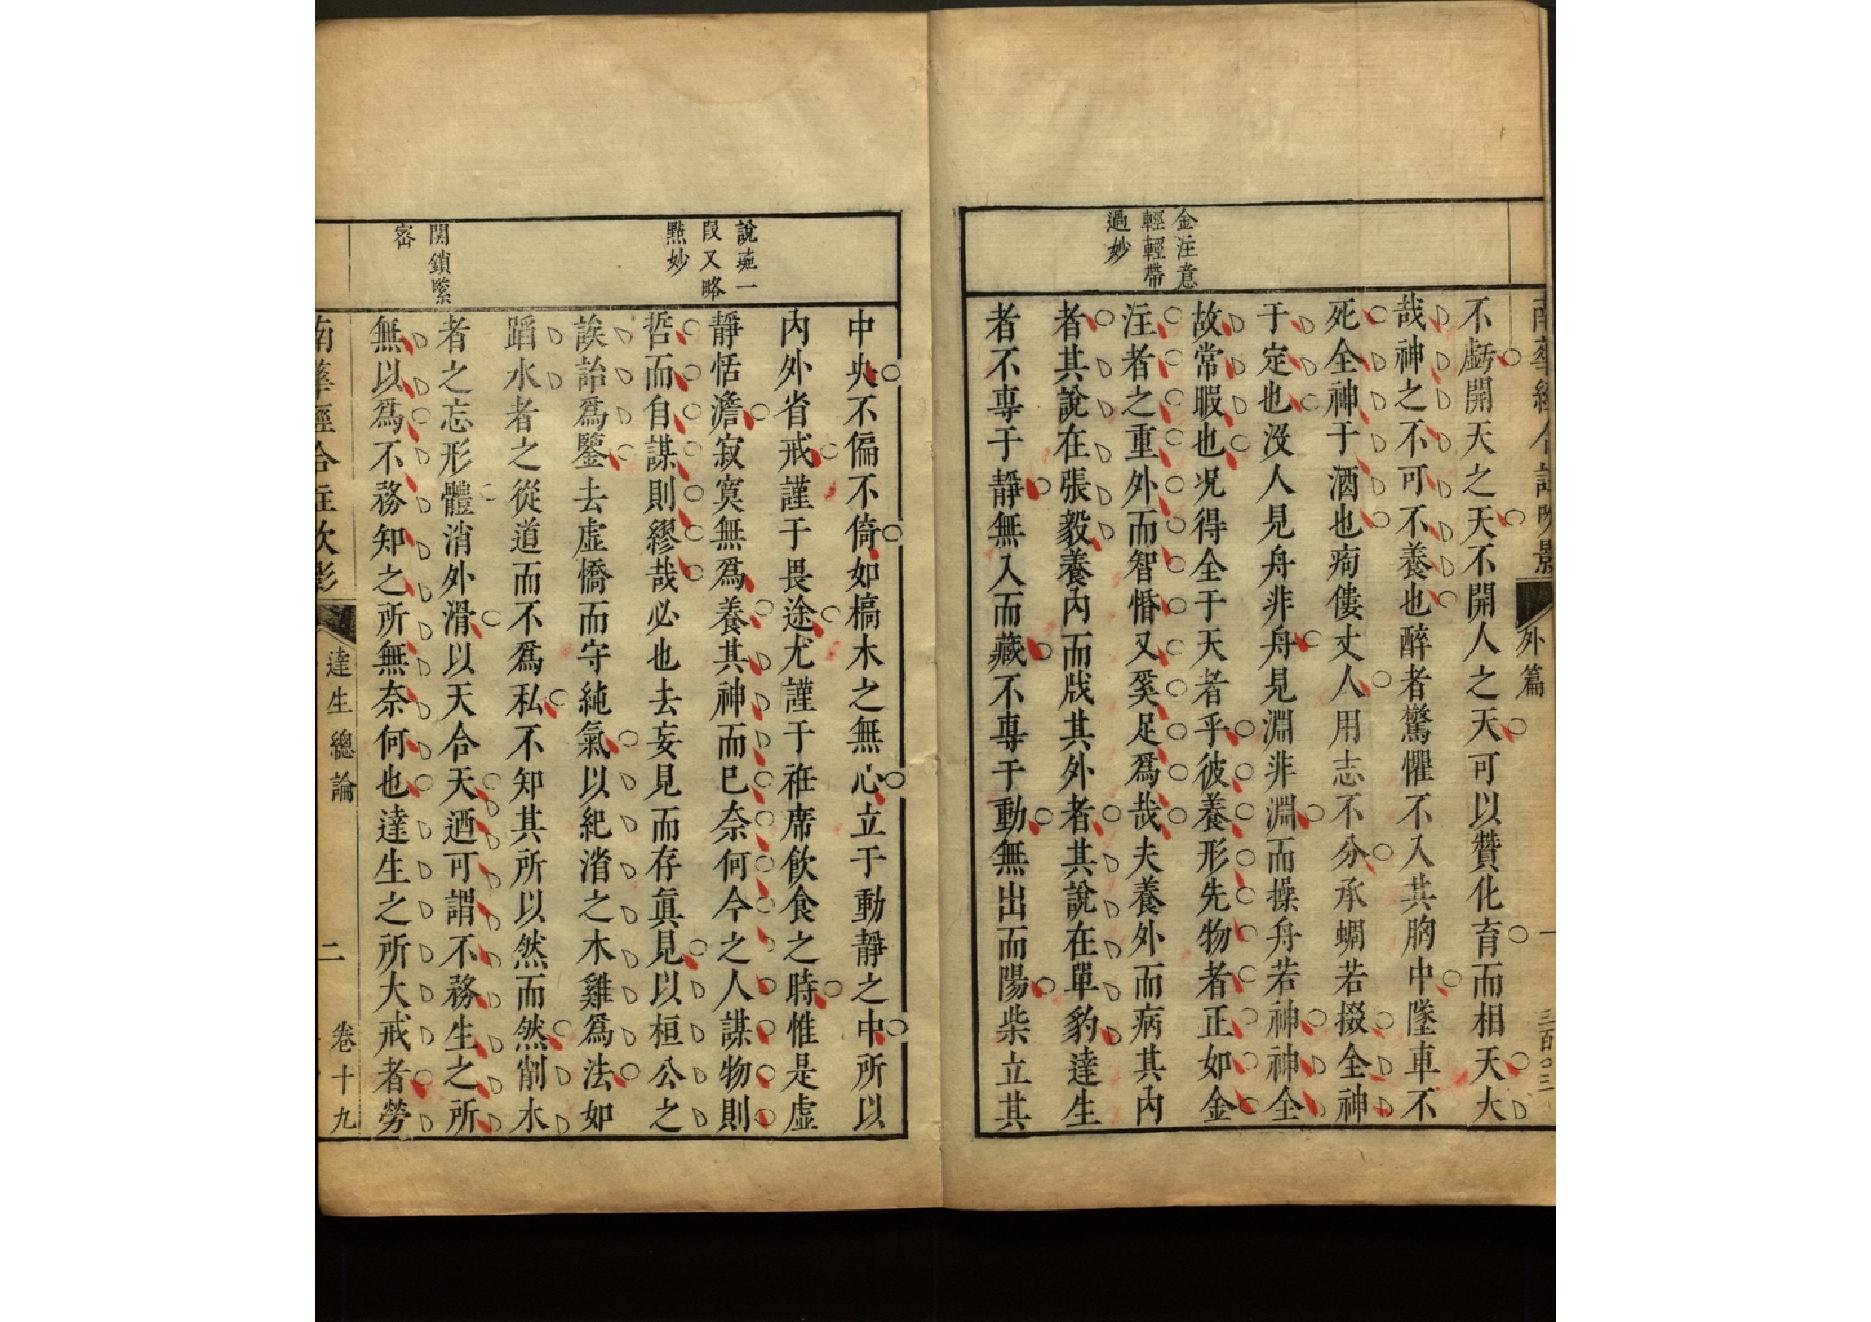 金注意
輕輕帶
過妙
外篇
不虧開天之天不開人之天可以贊化育而相天大
哉神之不可不養也醉者驚懼不入其胸中墜車不
死全神于酒也痀僂丈人用志不分承蜩若掇全神
于定也没人見舟非舟見淵非淵而操舟若神神全
故常暇也况得全于天者乎彼養形先物者正如金
注者之重外而智惛又奚足爲哉夫養外而病其内
者其說在張毅養内而戕其外者其說在單豹達生
者不專于靜無入而藏不專于動無出而陽柴立其
說完一
段又略
㸃妙
関鎖緊
密
中央不偏不倚如槁木之無心立于動靜之中所以
内外省戒謹于畏途尤謹于袵席飲食之時惟是虛
靜恬澹寂寞無爲養其神而已奈何今之人謀物則
哲而自謀則繆哉必也去妄見而存眞見以桓公之
誒詒爲鑒去虛憍而守純氣以紀渻之木雞爲法如
蹈水者之從道而不爲私不知其所以然而然削木
者之忘形體消外滑以天合天迺可謂不務生之所
無以爲不務知之所無奈何也達生之所大戒者勞
南華經合註吹影
達生總論
二
卷十九